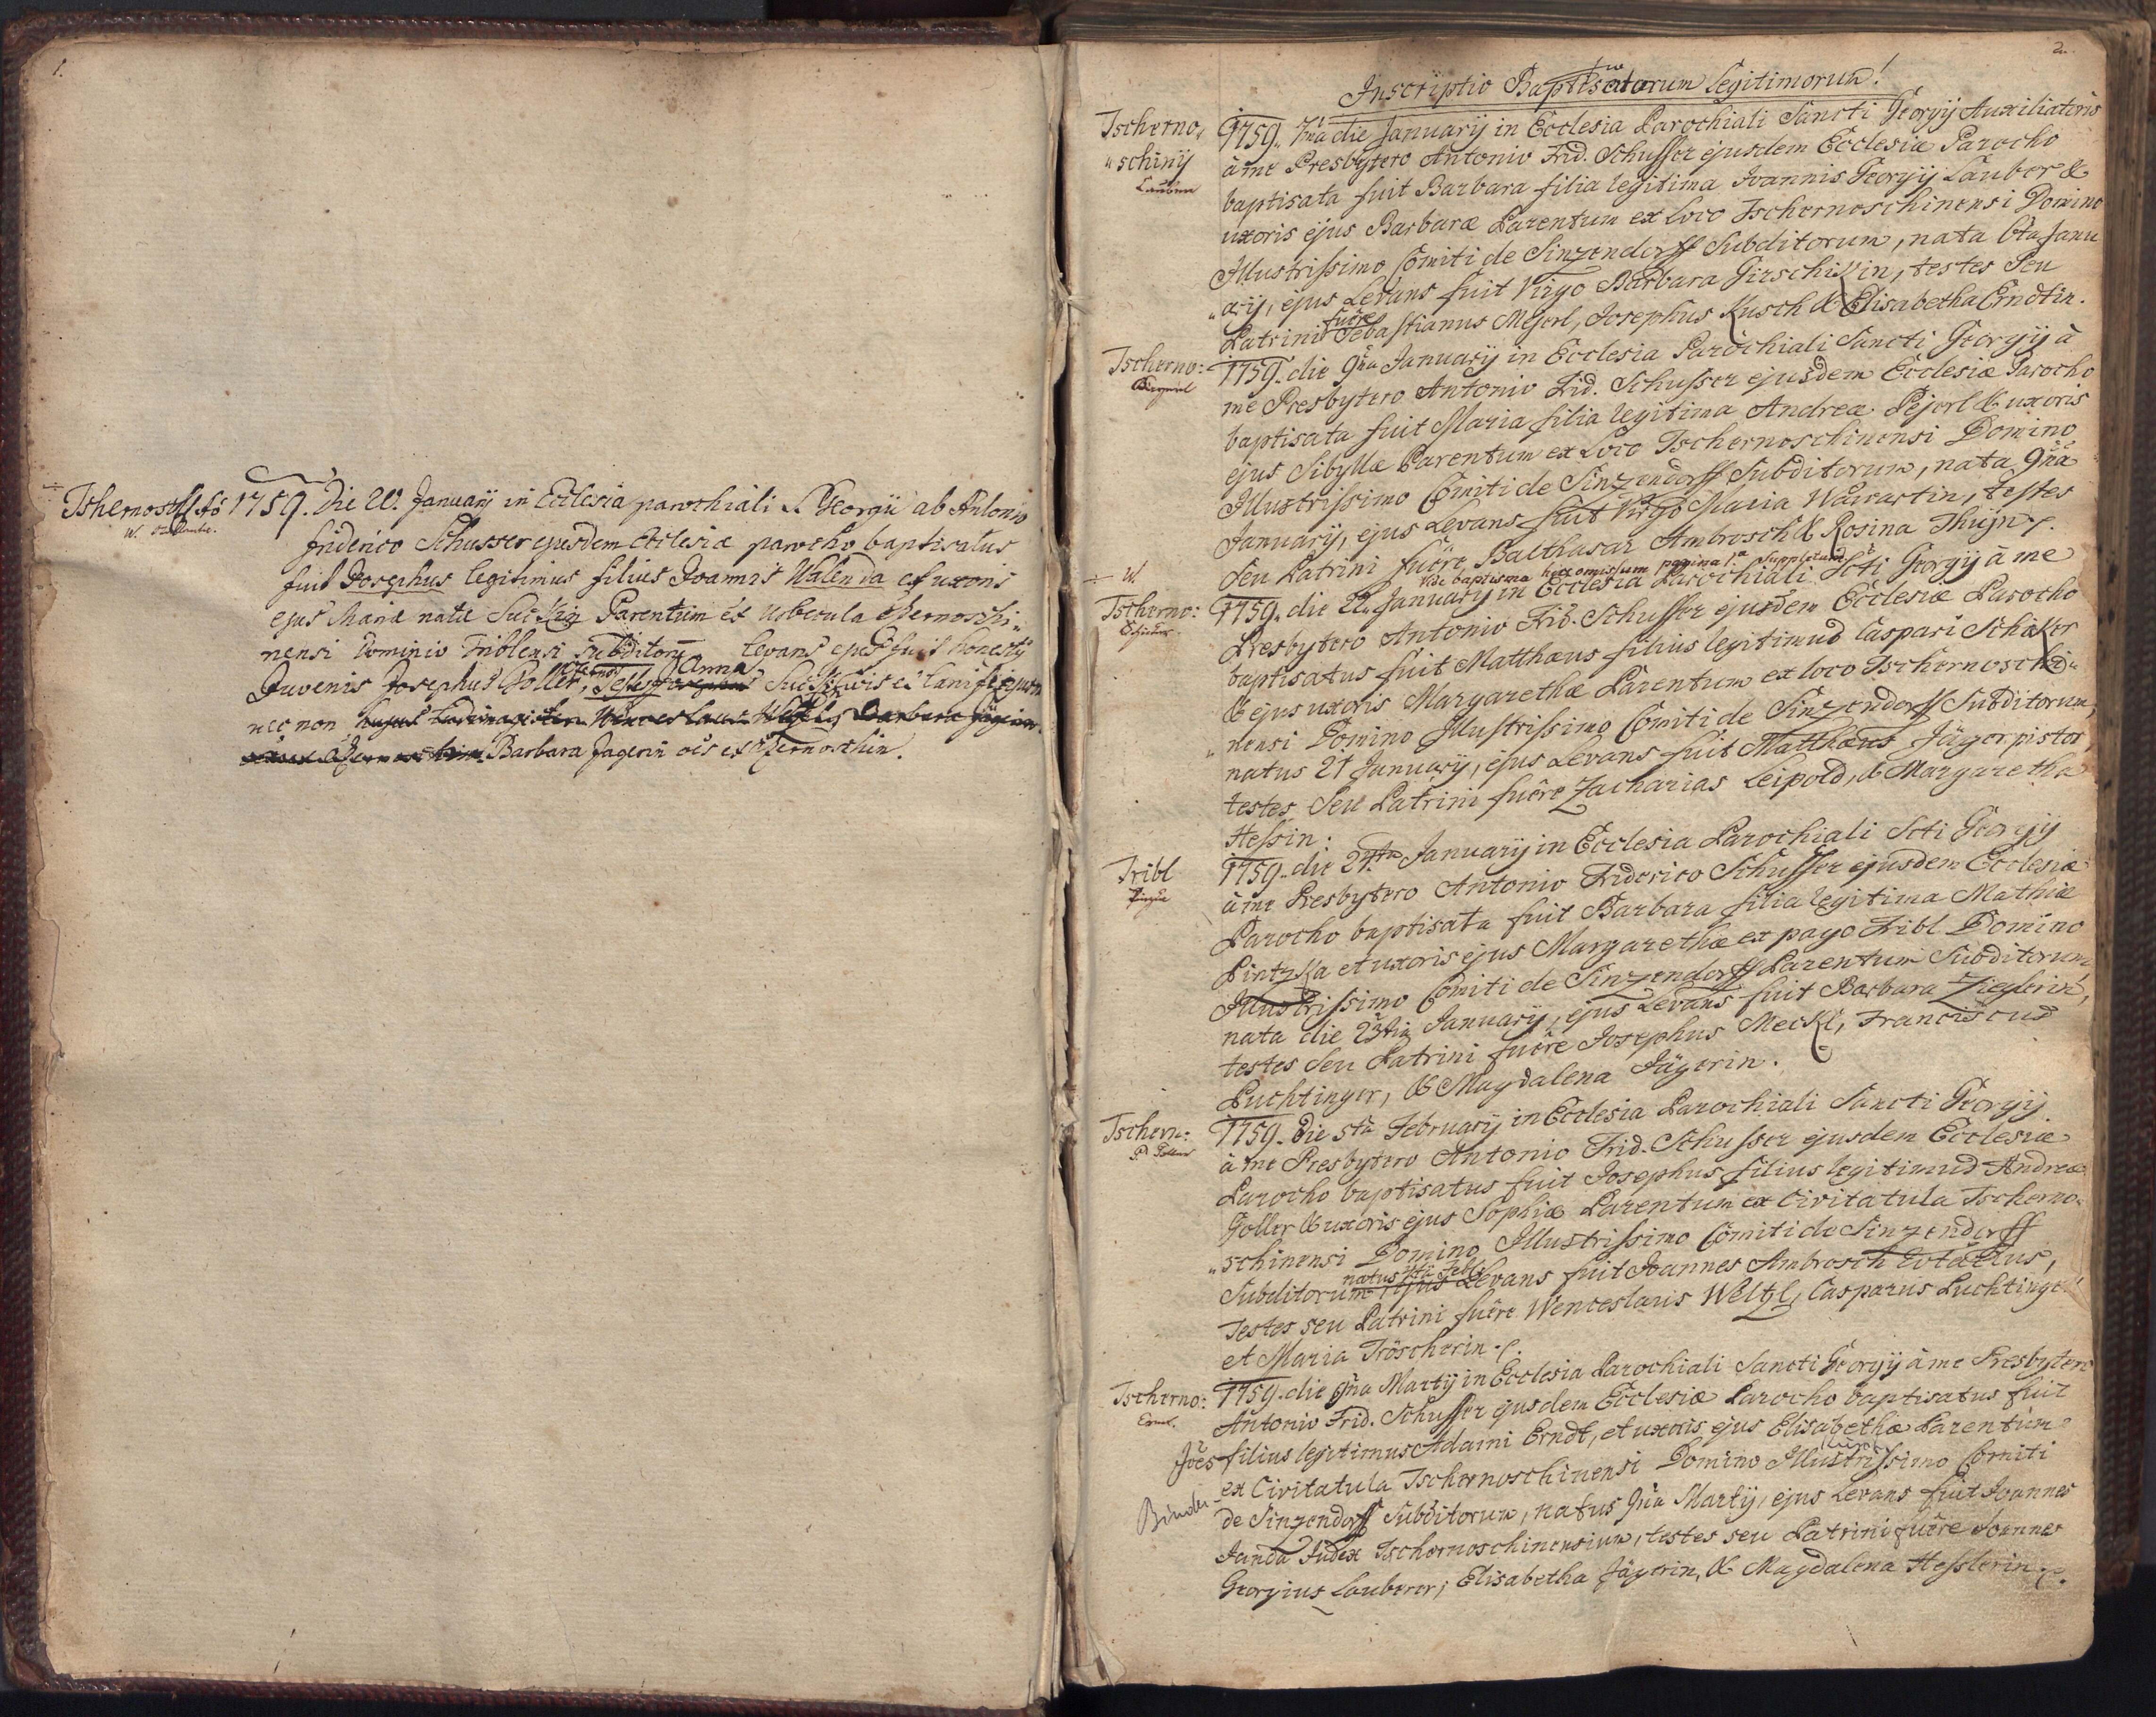 1.
Tshernosch. Aô 1759. Die 20. Januarij in Ecclesia parochiali S. Georgii ab Antonio
friderico Schusser ejusdem Ecclesiæ parocho baptisatus
fuit Josephus legitimus filius Joannis Walenda et uxoris
ejus Mariæ natæ Parentum ex Urbecula tschernoschi„
nensi Dominio Triblensi subditorū levans ejus fuit honestus
Juvenis Josephus Goller, Testes Anna
nec non
Barbara Jagerin oēs ex tschernoschin.
2.
Inscriptio Baptisatorum Legitimorum!
Tscherno„
„schinÿ
Lauber
1759. 7ma die Januarij in Ecclesia Parochiali Sancti Georgij Auxiliatoris
à me Presbytero Antonio Frid. Schusser ejusdem Ecclesiæ Parocho
baptisata fuit Barbara filia legitima Joannis Georgij Lauber &
uxoris ejus Barbaræ Parentum ex Loco Tschernoschinensi Domino
Illustrissimo Comiti de Sinzendorff Subditorum, nata 6ta Janu
„arij, ejus Levans fuit Virgo Barbara Girschikin, testes seu
Patrini fuêre Sebastianus Mejerl, Josephus Kusch & Elisabetha Erndtin.
Tscherno:
1759. die 9na Januarij in Ecclesia Parochiali Sancti Georgij à
me Presbytero Antonio Frid. Schusser ejusdem Ecclesiæ Parocho
baptisata fuit Maria filia legitima Andreæ Pejerl & uxoris
ejus Sibyllæ Parentum ex Loco Tschernoschinensi Domino
Illustrissimo Comiti de Sinzendorff Subditorum, nata 9na
Januarij, ejus Levans fuit Virgo Maria Wawartin, testes
seu Patrini fuêre, Balthasar Ambrosch & Rosina Thüjn
÷ W.
Vide baptisma hic omissum pagina 1a suppletum
Tscherno:
1759. die 22. Januarij in Ecclesia Parochiali Scti Georgij à me
Presbytero Antonio Frid. Schusser ejusdem Ecclesiæ Parocho
baptisatus fuit Matthæus filius legitimus Caspari Schiker
& ejus uxoris Margarethæ Parentum ex loco Tschernoschi„
„nensi Domino Illustrissimo Comiti de Sinzendorff Subditorum,
natus 21 Januarij, ejus Levans fuit Matthæus Jäger pistor,
testes seu Patrini fuêre Zacharias Leipold, & Margaretha
Hessin.
Tribl
1759. die 24ta Januarij in Ecclesia Parochiali Scti Georgij
à me Presbytero Antonio Friderico Schusser ejusdem Ecclesiæ
Parocho baptisata fuit Barbara filia legitima Mathiæ
Pintzka et uxoris ejus Margarethæ ex pago Tribl Domino
Illustrissimo Comiti de Sinzendorff Parentum Subditorum,
nata die 23tia Januarij, ejus Levans fuit Barbara Zieglerin,
testes seu Patrini fuêre Josephus Meckl, Franciscus
Puchtinger, & Magdalena Jägerin.
Tschern:
1759. Die 5ta Februarij in Ecclesia Parochiali Sancti Georgij
à me Presbytero Antonio Frid. Schusser ejusdem Ecclesiæ
Parocho baptisatus fuit Josephus filius legitimus Andreæ
Goller & uxoris ejus Sophiæ Parentum ex Civitatula Tscherno„
„schinensi Domino Illustrissimo Comiti de Sinzendorff
Subditorum, natus Feb. ejus Levans fuit Joannes Ambrosch
Testes seu Patrini fuêre Wenceslaus Weltzl, Casparus Puchtinger
et Maria Tröscherin.
Tscherno:
Ernd.
1759. die 9na Martij in Ecclesia Parochiali Sancti Georgij à me Presbytero
Antonio Frid. Schusser ejusdem Ecclesiæ Parocho baptisatus fuit
Jōes filius legitimus Adami Erndt, et uxoris ejus Elisabethæ Parentum
ex Civitatula Tschernoschinensi Domino Illustrissimo Comiti
Binder
de Sinzendorff Subditorum, natus 9na Martij, ejus Levans fuit Joannes
Janda Judex Tschernoschinensium, testes seu Patrini fuêre Joannes
Georgius Lauberer, Elisabetha Jägerin, & Magdalena Hesslerin